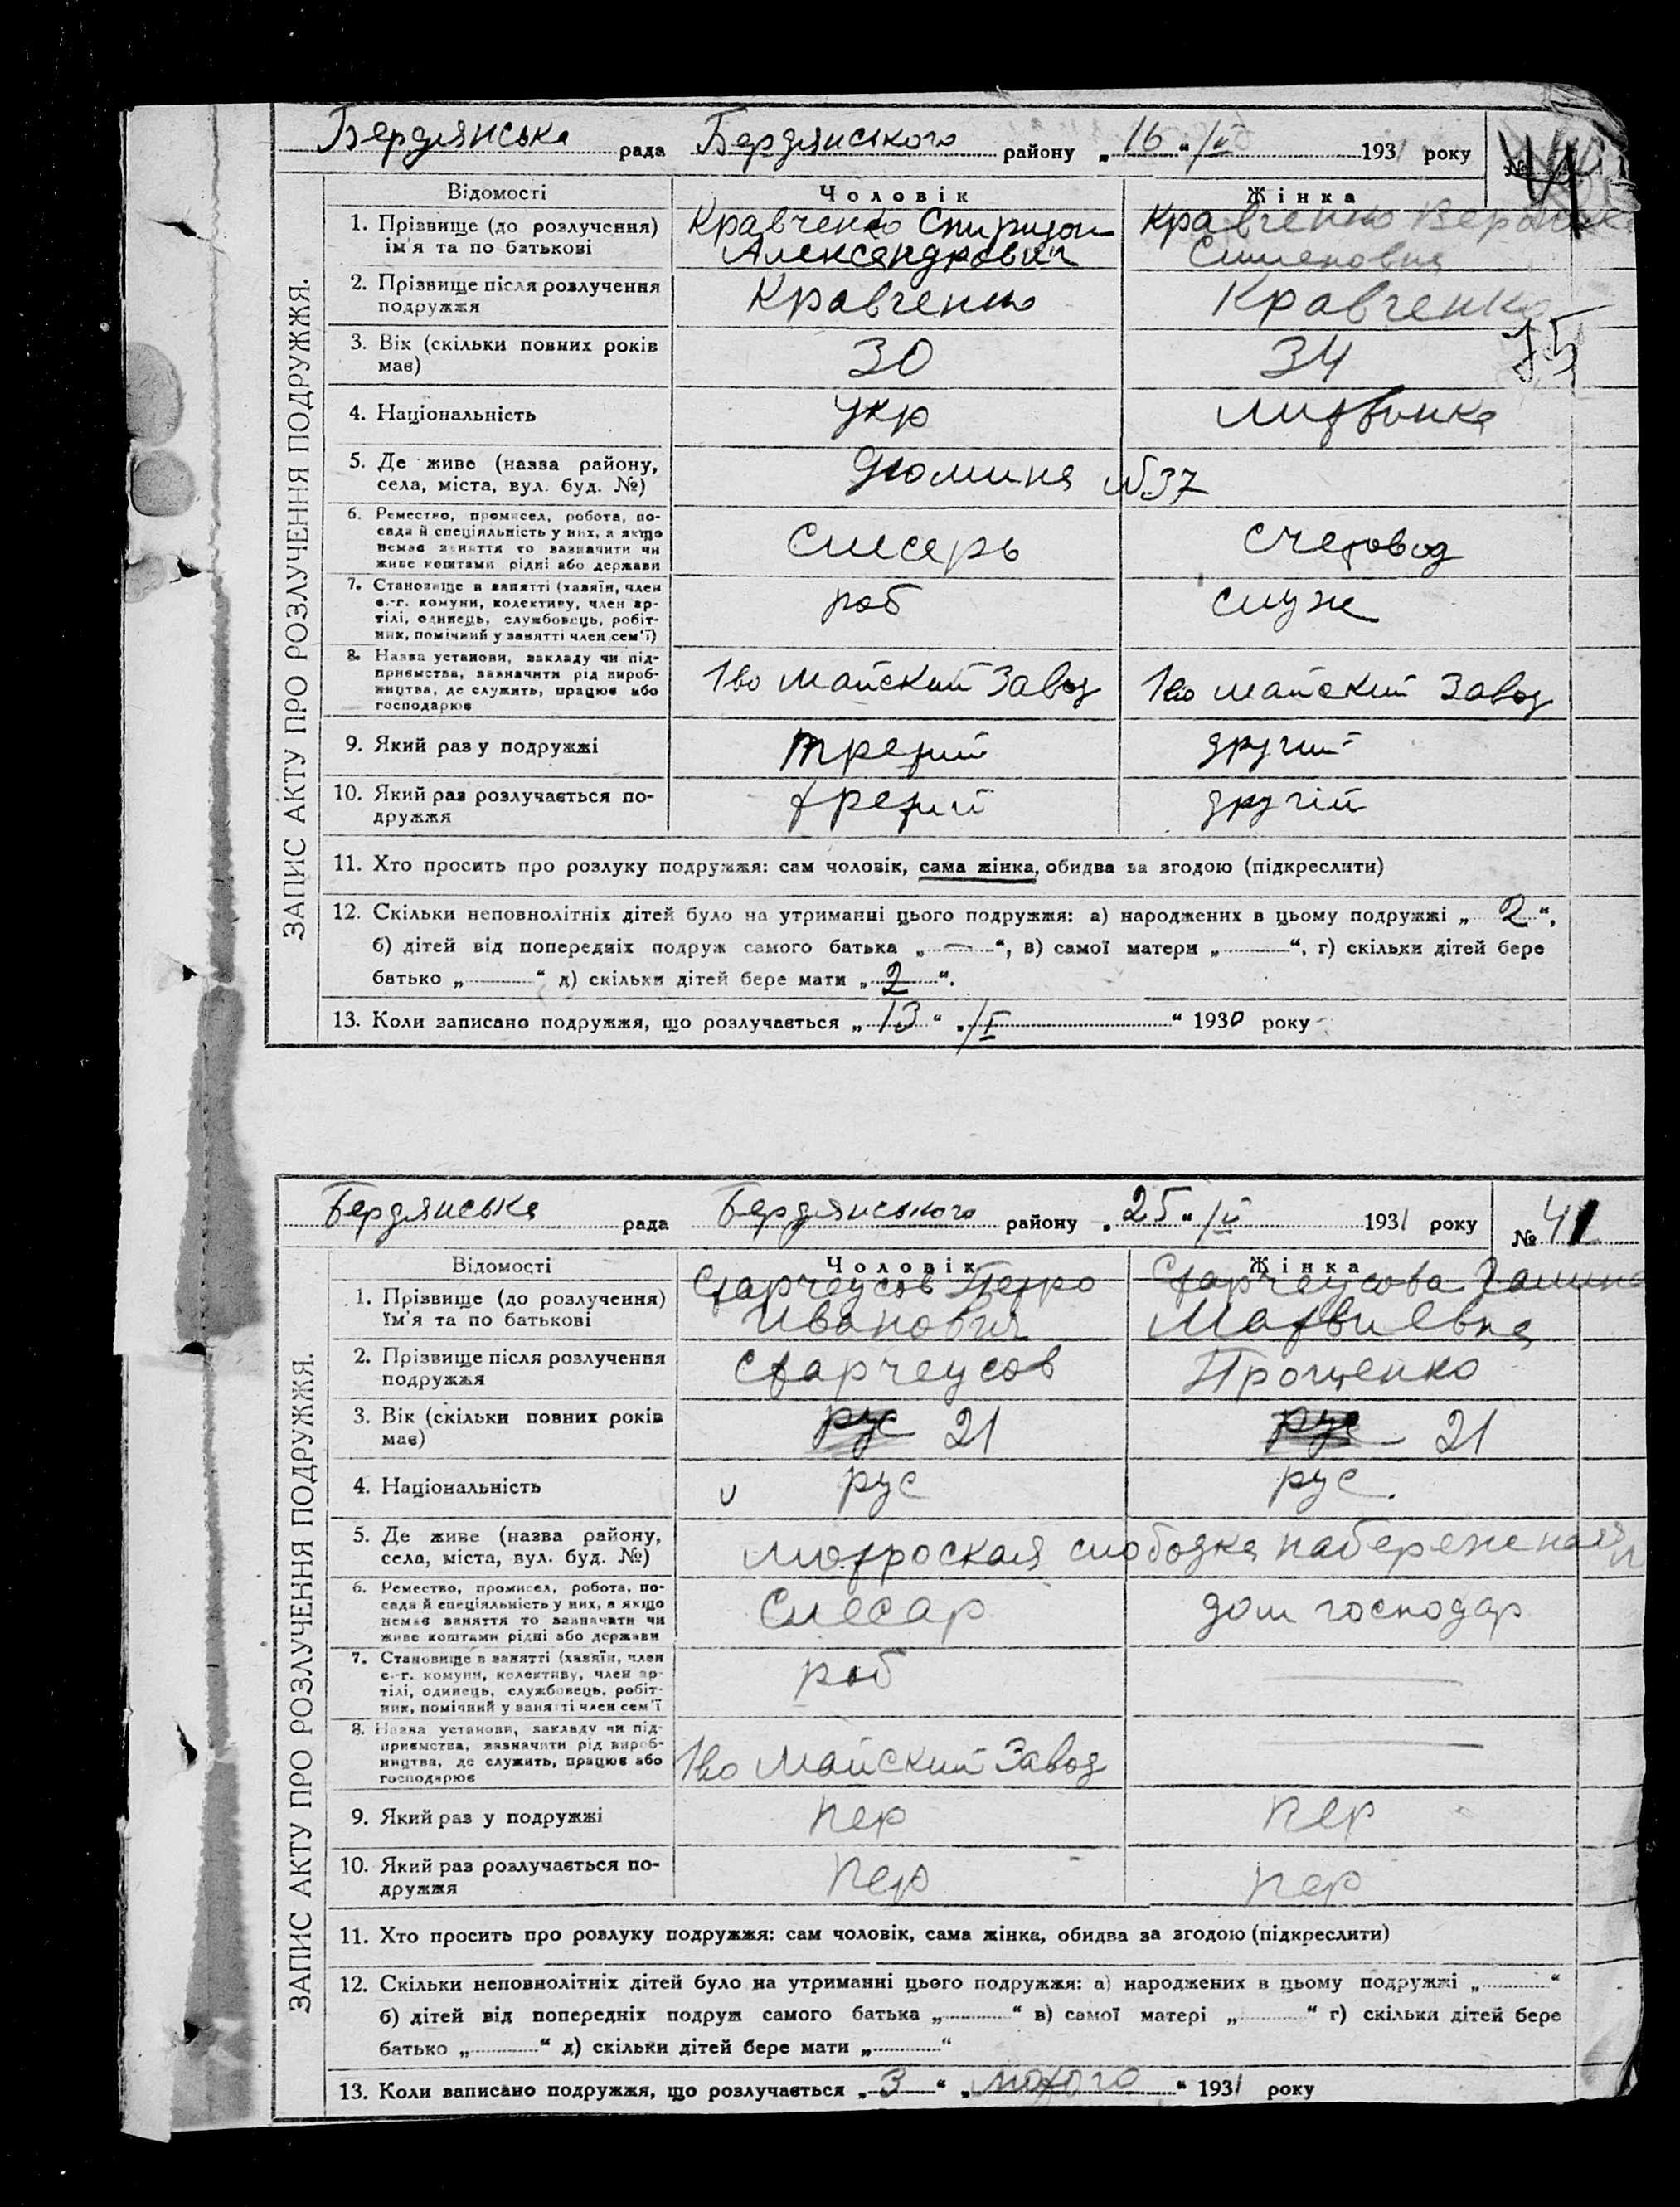 Бердянська рада Бердянського району „16“ IV 1931 року №
Відомості Чоловік Жінка
1. Прізвище (до розлучення) Кравченко Спиридон Кравченко
ім'я та по батькові Александрович Сименовна
2. Прізвище після розлучення Кравченко Кравченко
подружжя
3. Вік (скільки повних років 30 34
має)
4. Національність укр литвинка
5. Де живе (назва району, Дюмина №37
села, міста, вул. буд. №)
6. Ремество, промисел, робота, по-
сада й спеціяльність у них, а якщо слесарь счетовод
немає заняття то зазначити чи
живе коштами рідні або держави
7. Становище в занятті (хазяїн, член роб служ
с.-г. комуни, колективу, член ар-
тілі, одинець, службовець, робіт-
ник, помічний у занятті член сем'ї)
8. Назва установи, закладу чи під- 1во майский завод 1во майский завод
приємства, зазначити рід вироб-
ництва, де служить, працює або
господарює
9. Який раз у подружжі третий другий
10. Який раз розлучається по- третий другій
дружжя
11. Хто просить про розлуку подружжя: сам чоловік, сама жінка, обидва за згодою (підкреслити)
12. Скільки неповнолітніх дітей було на утриманні цього подружжя: а) народжених в цьому подружжі „ 2 “,
б) дітей від попередніх подруж самого батька „ — “, в) самої матери „ “, г) скільки дітей бере
батько „ “ д) скільки дітей бере мати „ 2 “.
13. Коли записано подружжя, що розлучається „ 13 “ „ “ 1930 року
ЗАПИС АКТУ ПРО РОЗЛУЧЕННЯ ПОДРУЖЖЯ.
Бердянська рада Бердянського району „25“ IV 1931 року № 41
Відомості Чоловік Жінка
1. Прізвище (до розлучення) Старчеусов Петро Старчеусова Галина
ім'я та по батькові Иванович Матвиевна
2. Прізвище після розлучення Старчеусов Проценко
подружжя
3. Вік (скільки повних років рус 21 рус 21
має)
4. Національність рус рус
5. Де живе (назва району, матроская слободка набережная
села, міста, вул. буд. №)
6. Ремество, промисел, робота, по-
сада й спеціяльність у них, а якщо Слесар дом господар
немає заняття то зазначати чи
живе коштами рідні або держави
7. Становище в занятті (хазяїн, член роб
с.-г. комуни, колективу, член ар-
тілі, одинець, службовець, робіт-
ник, помічний у занятті член сем'ї
8. Назва установи, закладу чи під-
приємства, зазначити рід вироб-
ництва, де служить, працює або 1во Майский Завод
господарює
9. Який раз у подружжі пер пер
10. Який раз розлучається по- пер пер
дружжя
11. Хто просить про розлуку подружжя: сам чоловік, сама жінка, обидва за згодою (підкреслити)
12. Скільки неповнолітніх дітей було на утриманні цього подружжя: а) народжених в цьому подружжі „ “
б) дітей від попередніх подруж самого батька „ “ в) самої матері „ “ г) скільки дітей бере
батько „ “ д) скільки дітей бере мати „ “
13. Коли записано подружжя, що розлучається „ 3 “ „ лютого “ 1931 року
ЗАПИС АКТУ ПРО РОЗЛУЧЕННЯ ПОДРУЖЖЯ.